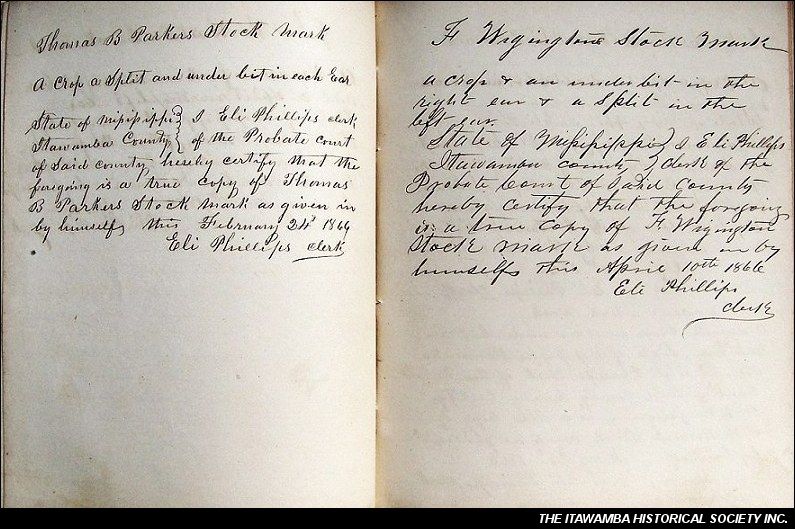 Thomas B Parkers Stock Mark
A Crop a Split and under bit in each Ear
State of Mississippi } I Eli Phillips clerk
Itawamba County } of the Probate court
of Said county hereby certify that the
foregoing is a true copy of Thomas
B Parkers Stock mark as given in
by himself, this February 24th 1866
Eli Phillips clerk
F Wigington Stock Mark
a crop & an underbit in the
right ear & a Split in the
left ear.
State of Mississippi } I Eli Phillips
Itawamba County } clerk of the
Probate Court of Said County
hereby certify that the forgoing
is a true copy of F. Wigington
Stock mark as given in by
himself this April 10th 1866
Eli Phillips
clerk
THE ITAWAMBA HISTORICAL SOCIETY INC.